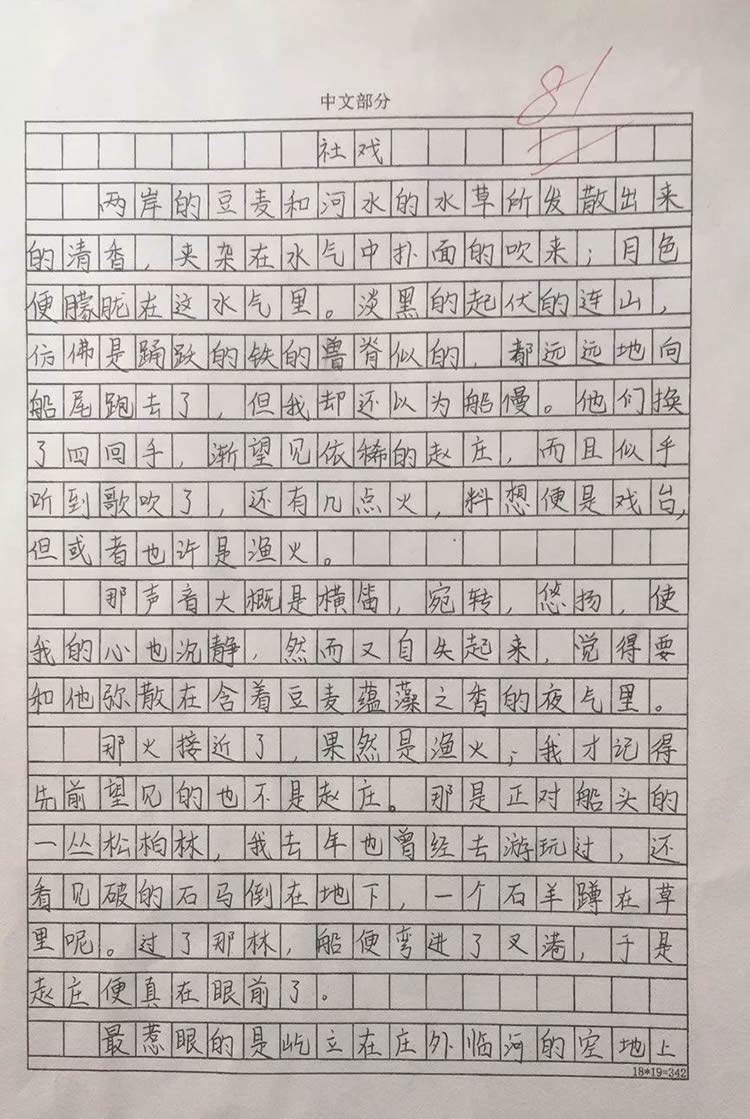 中文部分
81
社戏
两岸的豆麦和河水的水草所发散出来
的清香，夹杂在水气中扑面的吹来；月色
便朦胧在这水气里。淡黑的起伏的连山，
仿佛是踊跃的铁的兽脊似的，都远远地向
船尾跑去了，但我却还以为船慢。他们换
了四回手，渐望见依稀的赵庄，而且似乎
听到歌吹了，还有几点火，料想便是戏台，
但或者也许是渔火。
那声音大概是横笛，宛转，悠扬，使
我的心也沉静，然而又自失起来，觉得要
和他弥散在含着豆麦蕴藻之香的夜气里。
那火接近了，果然是渔火；我才记得
先前望见的也不是赵庄。那是正对船头的
一丛松柏林，我去年也曾经去游玩过，还
看见破的石马倒在地下，一个石羊蹲在草
里呢。过了那林，船便弯进了叉港，于是
赵庄便真在眼前了。
最惹眼的是屹立在庄外临河的空地上
18*19=342